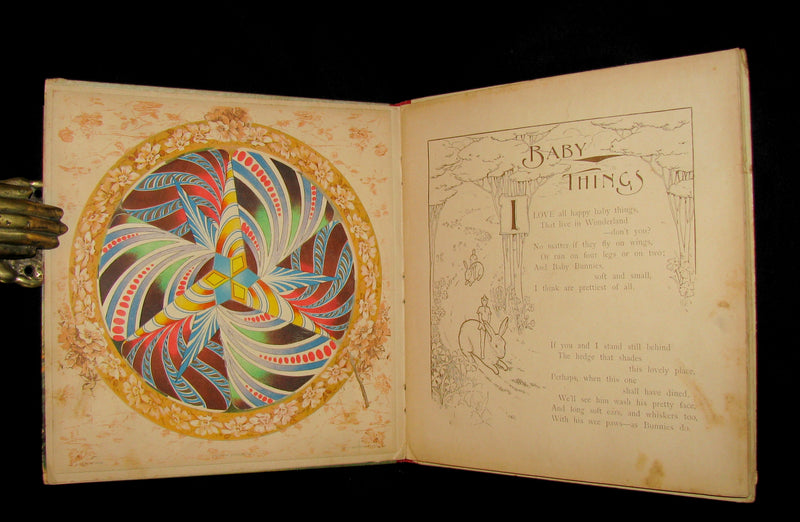 BABY
THINGS
I LOVE all happy baby things,
That live in Wonderland
—don't you?
No matter if they fly on wings,
Or run on four legs or on two;
And Baby Bunnies,
soft and small,
I think are prettiest of all.
If you and I stand still behind
The hedge that shades
this lovely place,
Perhaps, when this one
shall have dined,
We'll see him wash his pretty face,
And long soft ears, and whiskers too,
With his wee paws—as Bunnies do.